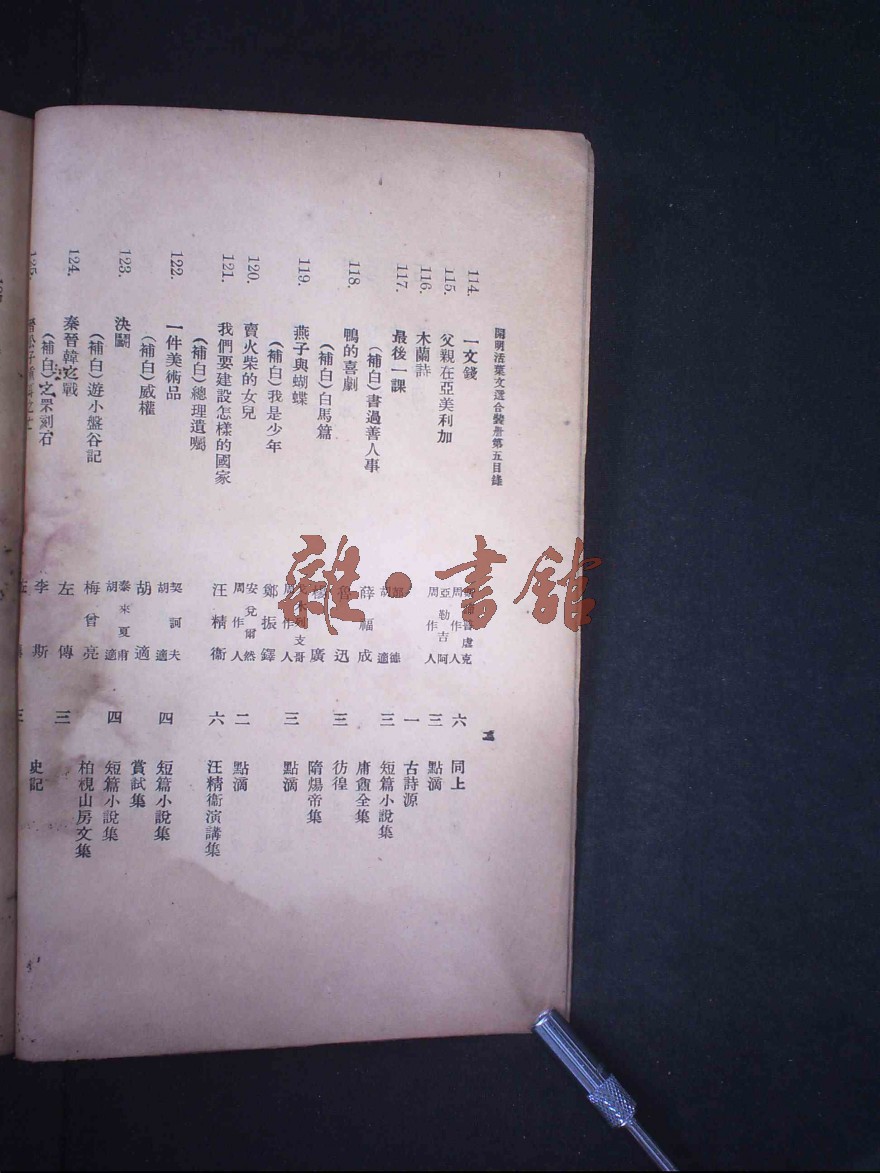 開明活葉文選合裝册第五目錄
114. 一文錢 周作人 六 同上
115. 父親在亞美利加 亞勒吉阿 周作人 三 點滴
116. 木蘭詩 一 古詩源
117. 最後一課 胡適 三 短篇小說集
(補白)書過善人事 薛福成 庸盦全集
118. 鴨的喜劇 魯迅 三 彷徨
(補白)白馬篇 楊廣 隋煬帝集
119. 燕子與蝴蝶 周作人 三 點滴
(補白)我是少年 鄭振鐸
120. 賣火柴的女兒 安兌爾然 周作人 二 點滴
121. 我們要建設怎樣的國家 汪精衞 六 汪精衞演講集
(補白)總理遺囑
122. 一件美術品 契訶夫 胡適 四 短篇小說集
(補白)威權 胡適 嘗試集
123. 決鬭 泰來夏甫 胡適 四 短篇小說集
(補白)遊小盤谷記 梅曾亮 柏梘山房文集
124. 秦晉韓之戰 左傳 三
(補白)之罘刻石 李斯 史記
125.
雜·書館